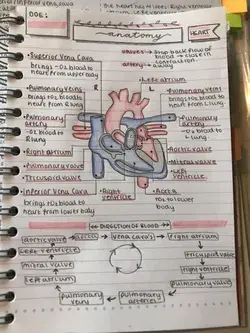 DOE:
anatomy
HEART
valves → stop back flow of
blood → close in
contraction
artery → away
Superior Vena Cava
brings -O2 blood to
heart from upper body
R
L
Left atrium
Pulmonary Veins
brings +O2 blood to
heart from R lung
Pulmonary veins
brings +O2 blood to
heart from L lung
Pulmonary
artery
-O2 blood to
R lung
Pulmonary
artery
-O2 blood to
L lung
Right atrium
Aortic valve
Pulmonary valve
Mitral valve
Tricuspid valve
Left
ventricle
Inferior Vena Cava
brings -O2 blood to
heart from lower body
Right
ventricle
Aorta
+O2 to lower
body
DIRECTION OF BLOOD
aortic valve
aorta
vena cava's
right atrium
left ventricle
tricuspid
valve
mitral valve
right ventricle
left atrium
pulmonary valve
pulmonary
veins
pulmonary
arteries